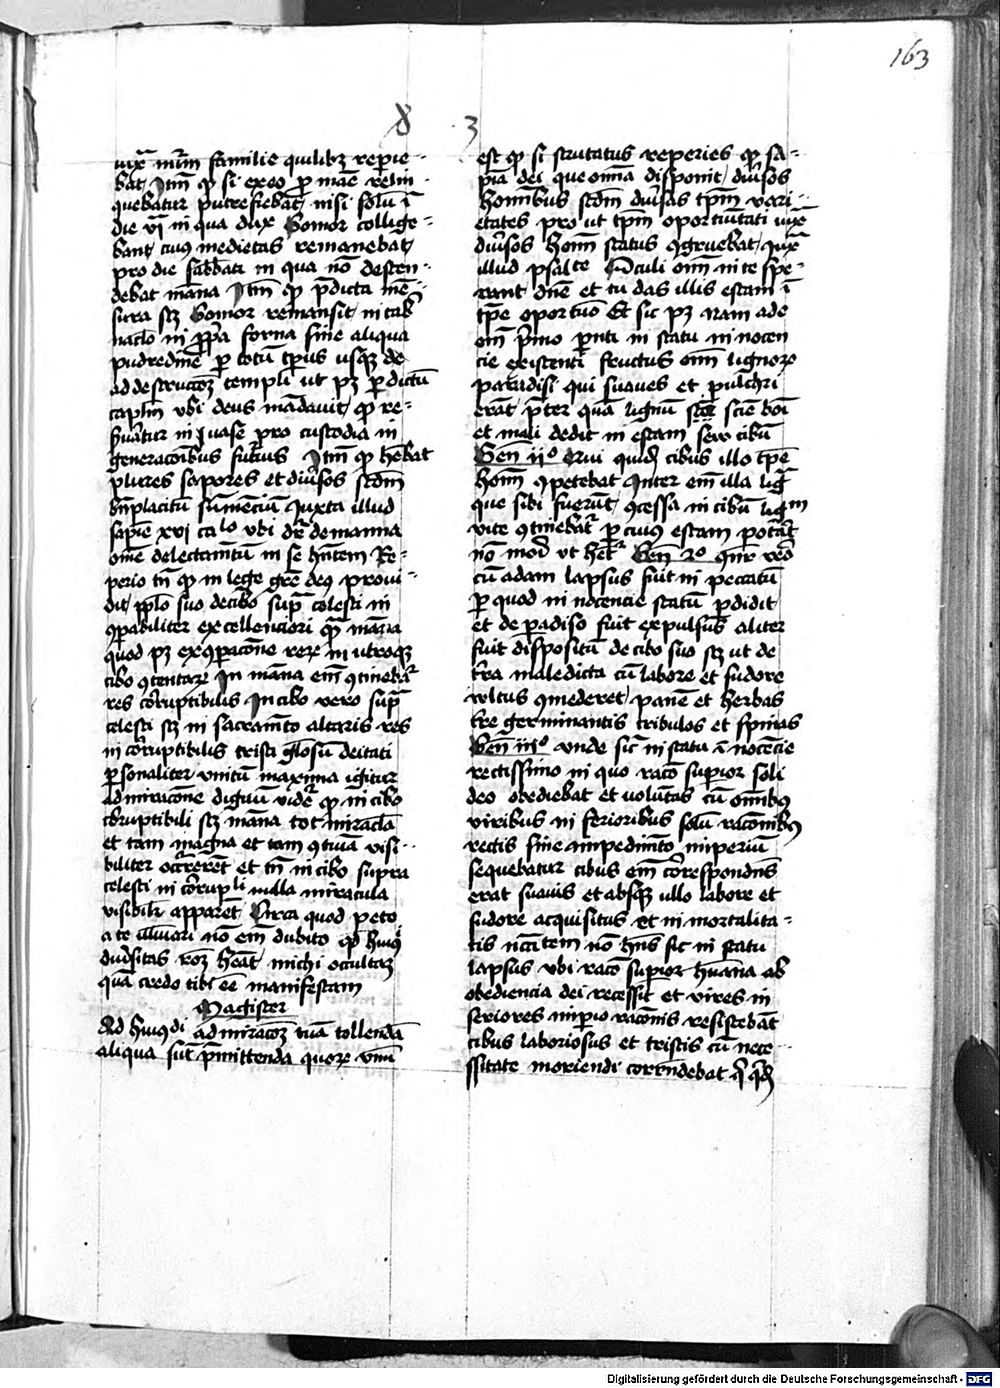 163
8 3
iuxͣ nūm familie quilibꝫ reperie-
bat Itm̄ qꝫ si ex eo ꝑ mane relin-
quebatur putrefiebat nisi solū ī
die vj in qua dux Gomor collige-
bant cuius medietas remanebat
pro die sabbati in qua nō descen-
debat manna Itm̄ qꝫ p̄dicta mē-
sura sꝫ Gomor remansit in tab̄
naclo in ꝓp̄a forma sine aliqua
putredine ꝑ totū tp̄us usqꝫ de
ad destructōꝫ templi ut pꝫ ꝑ dictū
caplm̄ ubi deus mādavit qꝫ re-
ẜuātur in j vase pro custodia in
generacōibus futuris Itm̄ qꝫ hēbat
plures sapores et diūsos scdm̄
bn̄placitū sumēciū Juxta illud
sapiē xvj caᵒ ubi dr̄ de manna
om̄e delectamētū in se hn̄tem Re-
perio tn̄ qꝫ in lege grē deꝰ provi-
dit pplo suo de cibo supͣ celesti in
ꝯparabiliter excellenciori qͣ māna
quod pꝫ ex ꝯparacōne reꝝ in utroqꝫ
cibo ꝯtentaꝝ In māna em̄ ꝯtinebaͬ
res corruptibilis In cibo vero supͣ
celesti sꝫ in sacramēto altaris res
in corruptibilis cristi glosū deitati
ꝑsonaliter unitū maxima igitur
admiracōne dignū vidēͬ qꝫ in cibo
corruptibili sꝫ mana tot miracla
et tam magna et tam ꝯtinua visi-
biliter occr̄rerēt et tn̄ in cibo supra
celesti in corrupli nulla miracula
visibilͬ apparēt Circa quod peto
a te illuīari nō em̄ dubito qꝫ huiꝰ
diūsitas roꝫ hēat michi occultaꝫ
quā credo tibi eē manifestam
Magister
Ad huiꝰdi admiracōꝫ tuā tollendā
aliqua sūt p̄mittenda quoꝝ unū
est qꝫ si scrutatus reperies qꝫ sa-
piā dei que omā disponit diūsos
hoīnibus scdm̄ diūsas tpm̄ vari-
etates pro ut tpm̄ oportunitati iuxͣ
diūsos hoīm status ꝯgruebat iuxͣ
illud psal te Oculi om̄ in te spe-
rant dn̄e et tu das illis escam ī
tp̄e oportuō Et sic pꝫ nam ade
om̄ p̄mo pn̄ti in statu in nocen
cie existenti fructus om̄ lignoꝝ
paradisi qui suaves et pulchri
erāt p̄ter quā lignū sciē boī
et mali dedit in escam seu cibū
Gen̄ ijᵒ Cui quid cibus illo tp̄e
hoīm ꝯpetebat Inter em̄ illa ligͣ
que sibi fuerūt ꝯcessa in cibū ligᵐ
vite ꝯtinebatͬ ꝑ cuius escam poterͣt
nō mori ut hēͬ Gen̄ 2ᵒ
cū adam lapsus fuit in peccatū
ꝑ quod in nocencie statū ꝑdidit
et de paradiso fuit expulsus aliter
fuit dispositū de cibo suo sꝫ ut de
tͬra maledicta cū labore et sudore
vultus ꝯmederet panē et herbas
tre germinantis tribulos et spinas
Gen̄ iijᵒ unde sicͬ in statu ī nocēcie
rectissimo in quo racō supior soli
deo obediebat et voluntas cū om̄ibꝰ
viribus in ferioribus solū racōnibꝰ
rectis sine impedimēto imperiū
sequebatur cibus em̄ correspondēs
erat suavis et absqꝫ ullo labore et
sudore acquisitus et in mortalita-
tis nc̄itatem nō hn̄s sic in statu
lapsus ubi racō supior huāna ab
obediencia dei recessit et vires in
feriores imperio racōnis resistebāt
cibus laboriosus et tristis cū nece
ssitate moriendi corrn̄debat
Digitalisierung gefördert durch die Deutsche Forschungsgemeinschaft - DFG